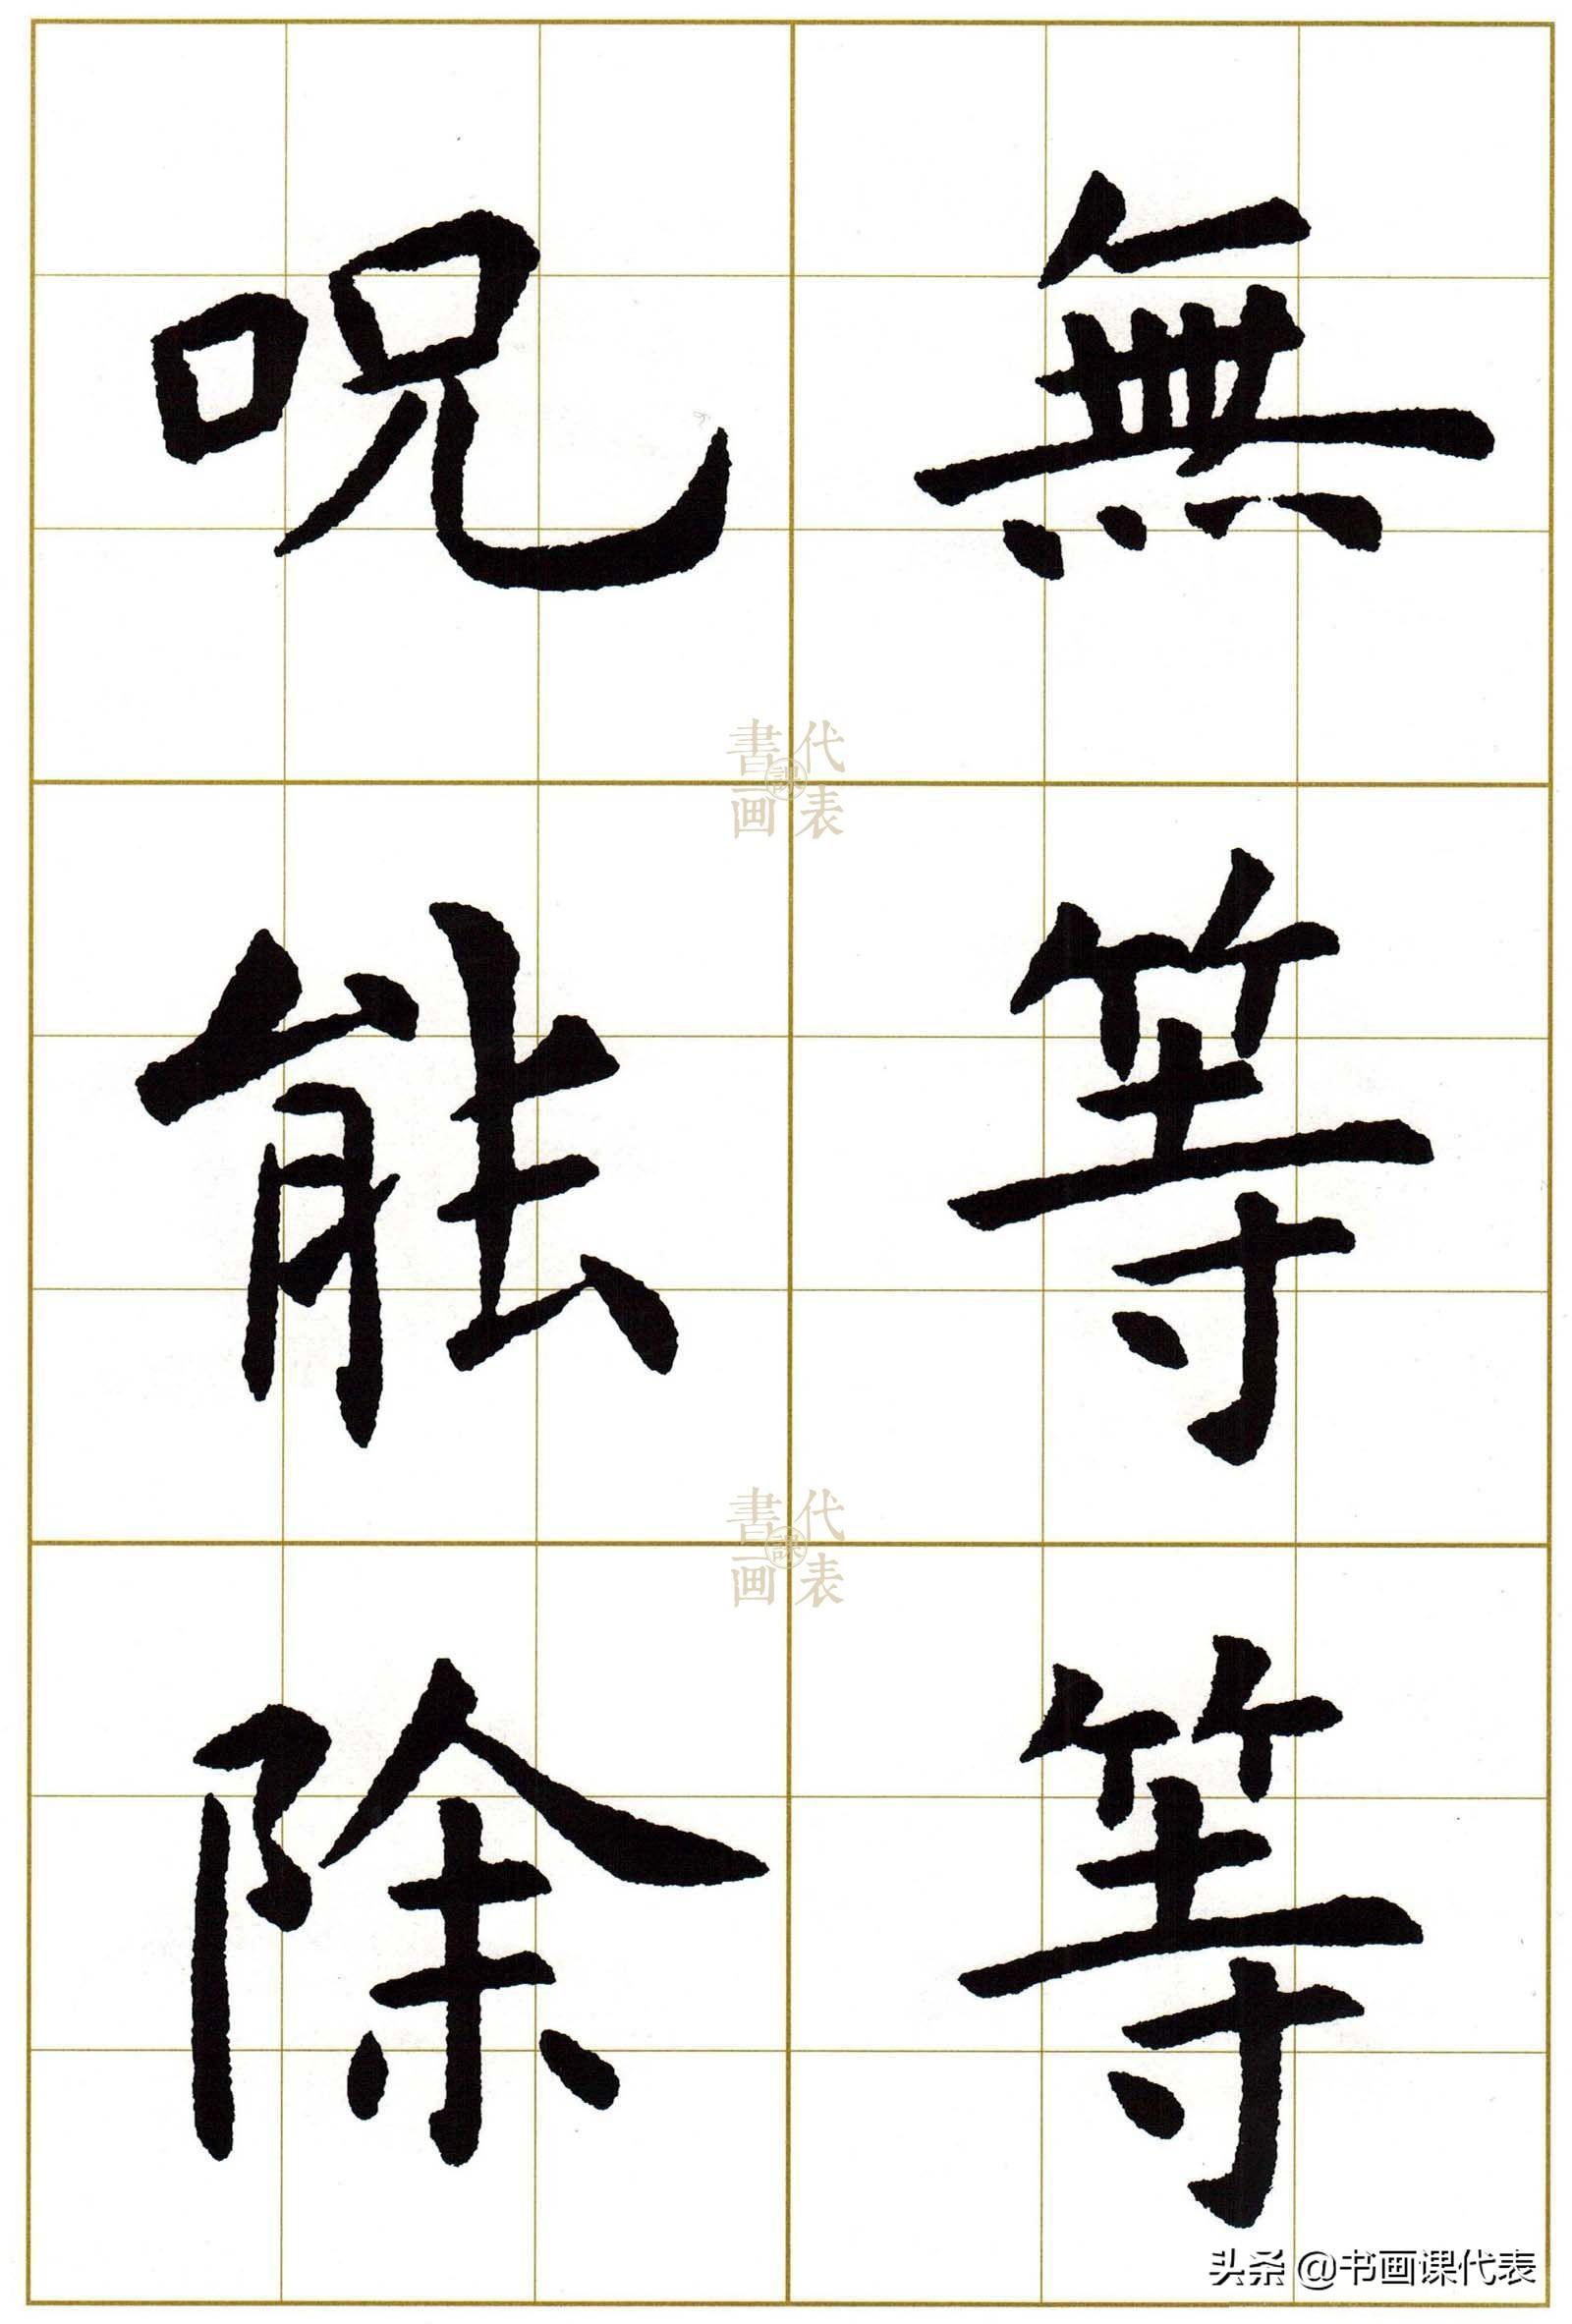 無等等
呪能除
書画課代表
書画課代表
头条 @书画课代表